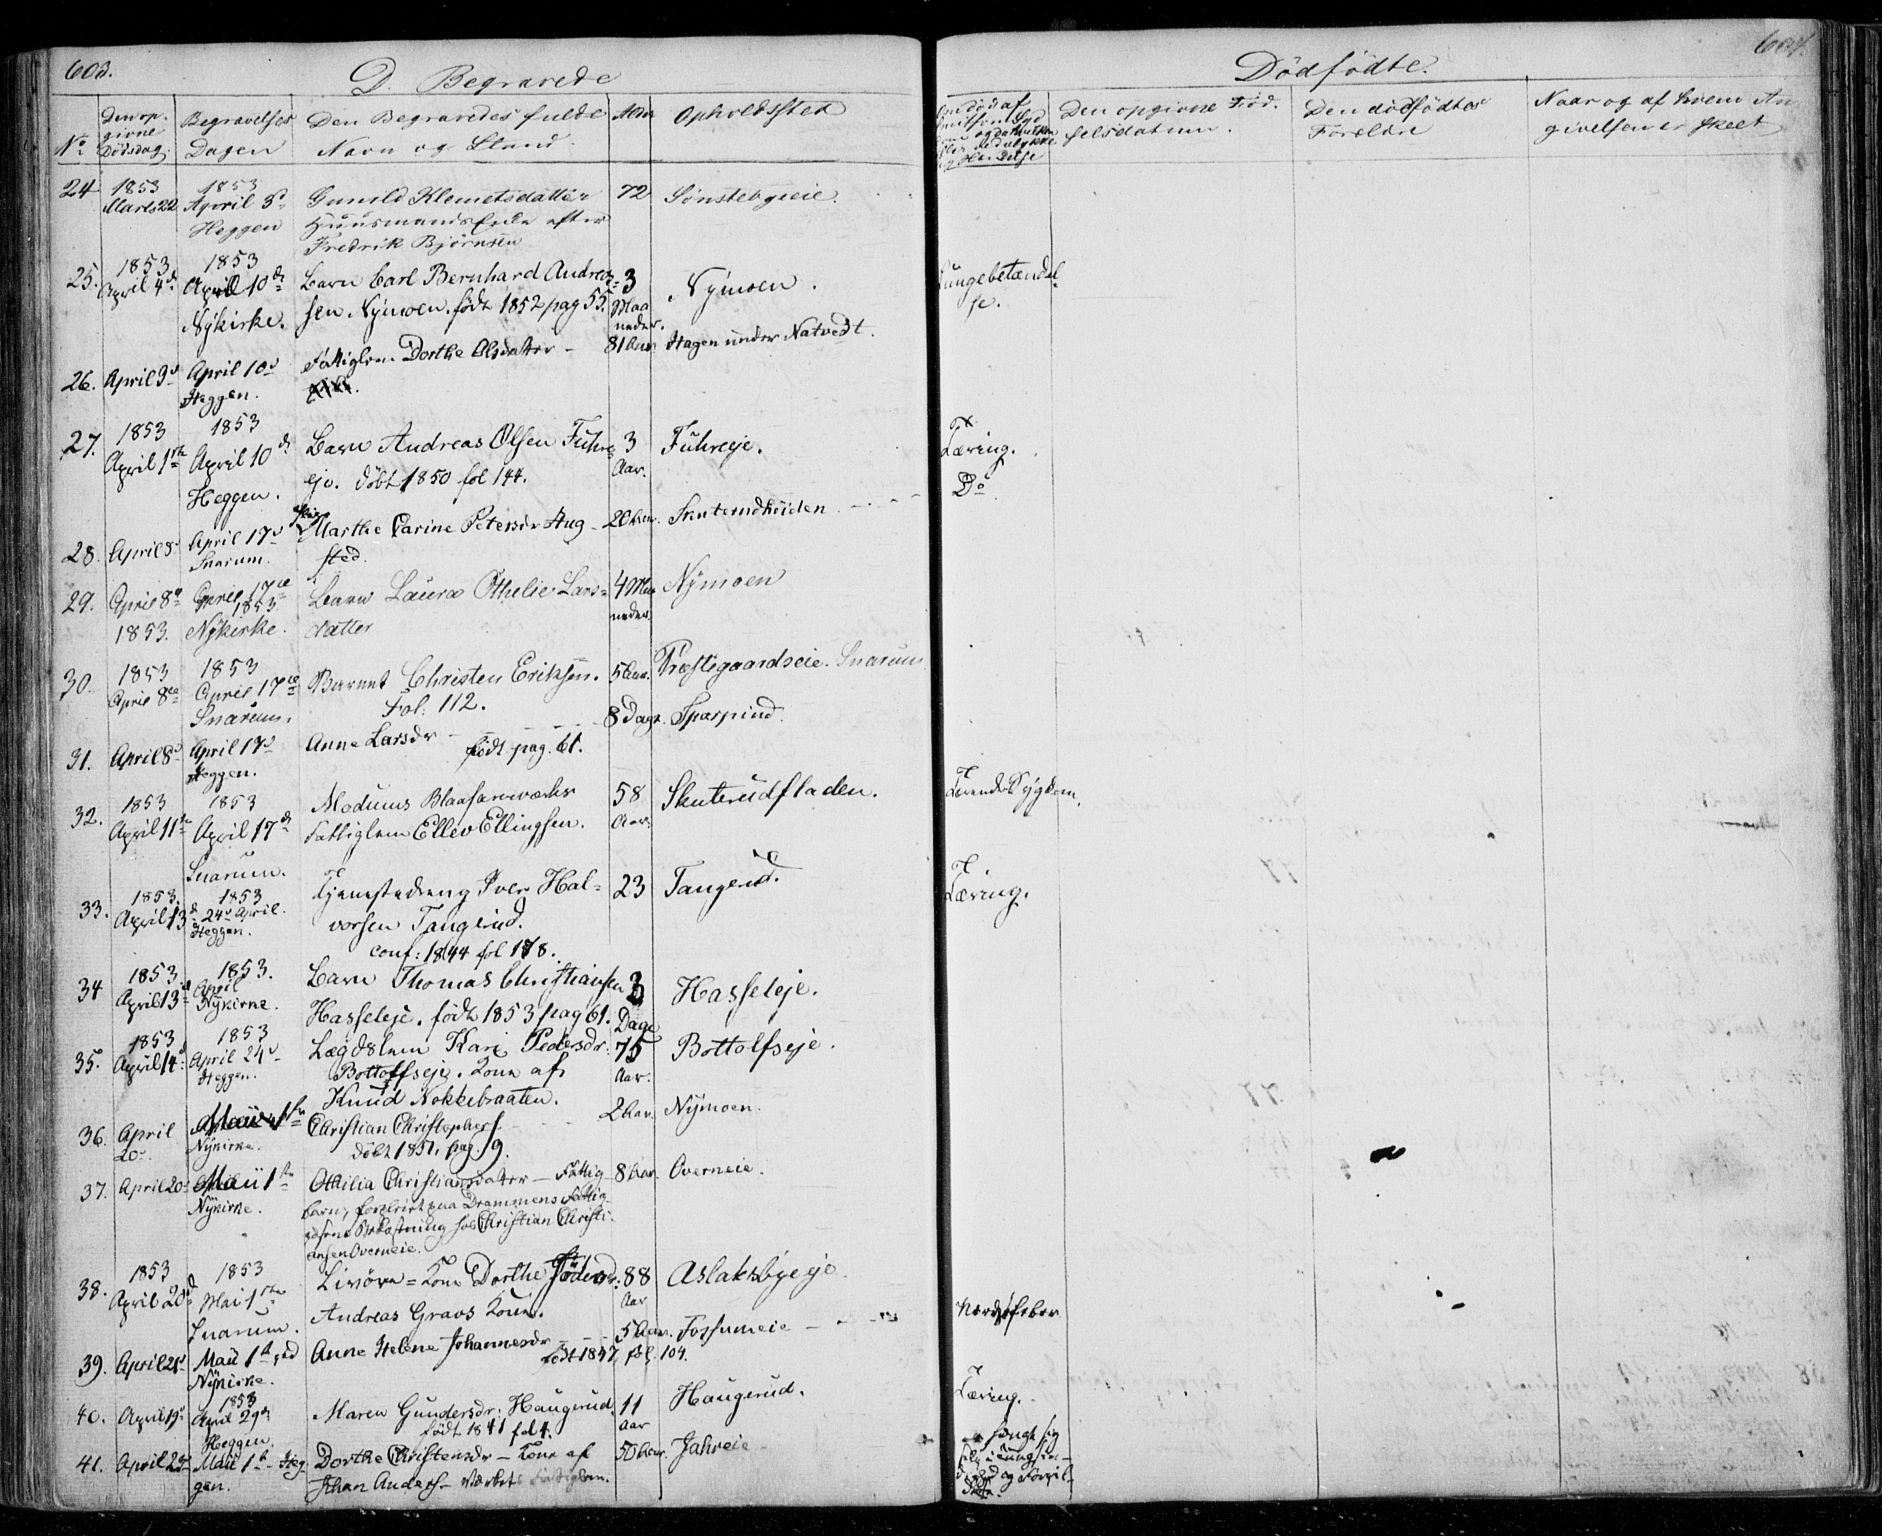 603.
D. Begravede
No
Den op-
givne
Dødsdag.
Begravelses
Dagen
Den Begravedes fulde
Navn og Stand.
Alder
Opholdssted
24
1853
Marts 22
1853
April 3d
Heggen
Gunild Klemetsdatter
Huusmandsenke efter
Fredrik Bjørnsen
72
Sønstebyeie.
25.
1853
April 4d
1853
April 10d
Nykirke.
Barn Carl Bernhard Andrea-
sen Nymoen. født 1852 pag 55.
3
Maa
neder.
Nymoen.
Lungebetændel
se.
26.
April 3d
April 10d
Heggen.
Fattiglem Dorthe Olsdatter -
81 Aar
Hagen under Natvedt.
27.
1853
April 1ste
1853
April 10d
Heggen.
Barn Andreas Olsen Fuhre
eje. døbt 1850 fol 144.
3
Aar.
Fuhreeje.
Tæring.
28.
April 8d
April 17d
Snarum.
Pige
Marthe Carine Petersdr Aug-
sted.
20 Aar.
Skuterudheiden
Do
29.
April 8de
1853.
April 17de
1853.
Nykirke.
Barn Laura Othelie Lars-
datter
4 Maa
neder.
Nymoen
30.
1853
April 8de
1853
April 17de
Snarum.
Barnet Christen Eriksen.
Fol. 112.
5 Aar.
Præstegaardseie. Snarum
31.
April 8d
April 17d
Heggen.
Anne Larsdr -
født pag. 61.
8 Dage.
Sparpind.
32.
1853
April 11te
1853
April 17d
Snarum.
Modums Blaafarveværks
Fattiglem Ellev Ellingsen.
58
Aar.
Skuterudfladen.
Tærende Sygdom.
33.
1853.
April 13d
1853
24d April.
Heggen.
Tjenestedreng Iver Hal-
vorsen Tangerud.
conf: 1844 fol 178.
23
Tangerud.
Tæring.
34
1853
April 13d
1853.
April
Nykirke.
Barn Thomas Christiansen
Hasseleje. født 1853 pag 61.
3
Dage
Hasseleje.
35.
1853
April 14d
1853
April 24d
Heggen.
Lægdslem Kari Pedersdr.
Bottolfseje. Kone af
Knud Nokkebraaten.
75
Aar.
Bottolfseje.
36.
April
20d.
Maii 1ste
Nykirke.
Christian Christophers.
døbt 1851. pag. 9.
2 Aar.
Nymoen.
37.
April 20d
Maii 1ste
Nykirke.
Othilia Christiansdatter - Fattig-
barn, forpleiet paa Drammens Fattig-
væsens Bekostning hos Christian Christi-
ansen Overneie.
8 Aar
Overneie.
38.
1853
April 20d
1853
Mai 1ste
Snarum.
Livøre-Kone Dorthe
Andreas Gravs Kone.
88
Aar
Aslaksbyeje.
39.
April 21d
Maii 1st ved
Nykirke.
Anne Helene Johannesdr
født 1847, fol. 104.
5 Aar.
Fossumeie
Nervefeber
40.
April 19d
1853
April 29de
Heggen
Maren Gundersdr. Haugerud.
født 1841 fol 4.
11
Aar
Haugerud.
Tæring.
41.
April 23d
Maii 1st Heg-
gen.
Dorthe Christensdr - Kone af
Johan Anders. Værkets Fattiglem.
50 Aar.
Jahreie
604.
Dødfødte.
Den opgivne Fød-
selsdatum.
Den dødfødtes
Forældre
Naar og af hvem An-
givelsen er skeet